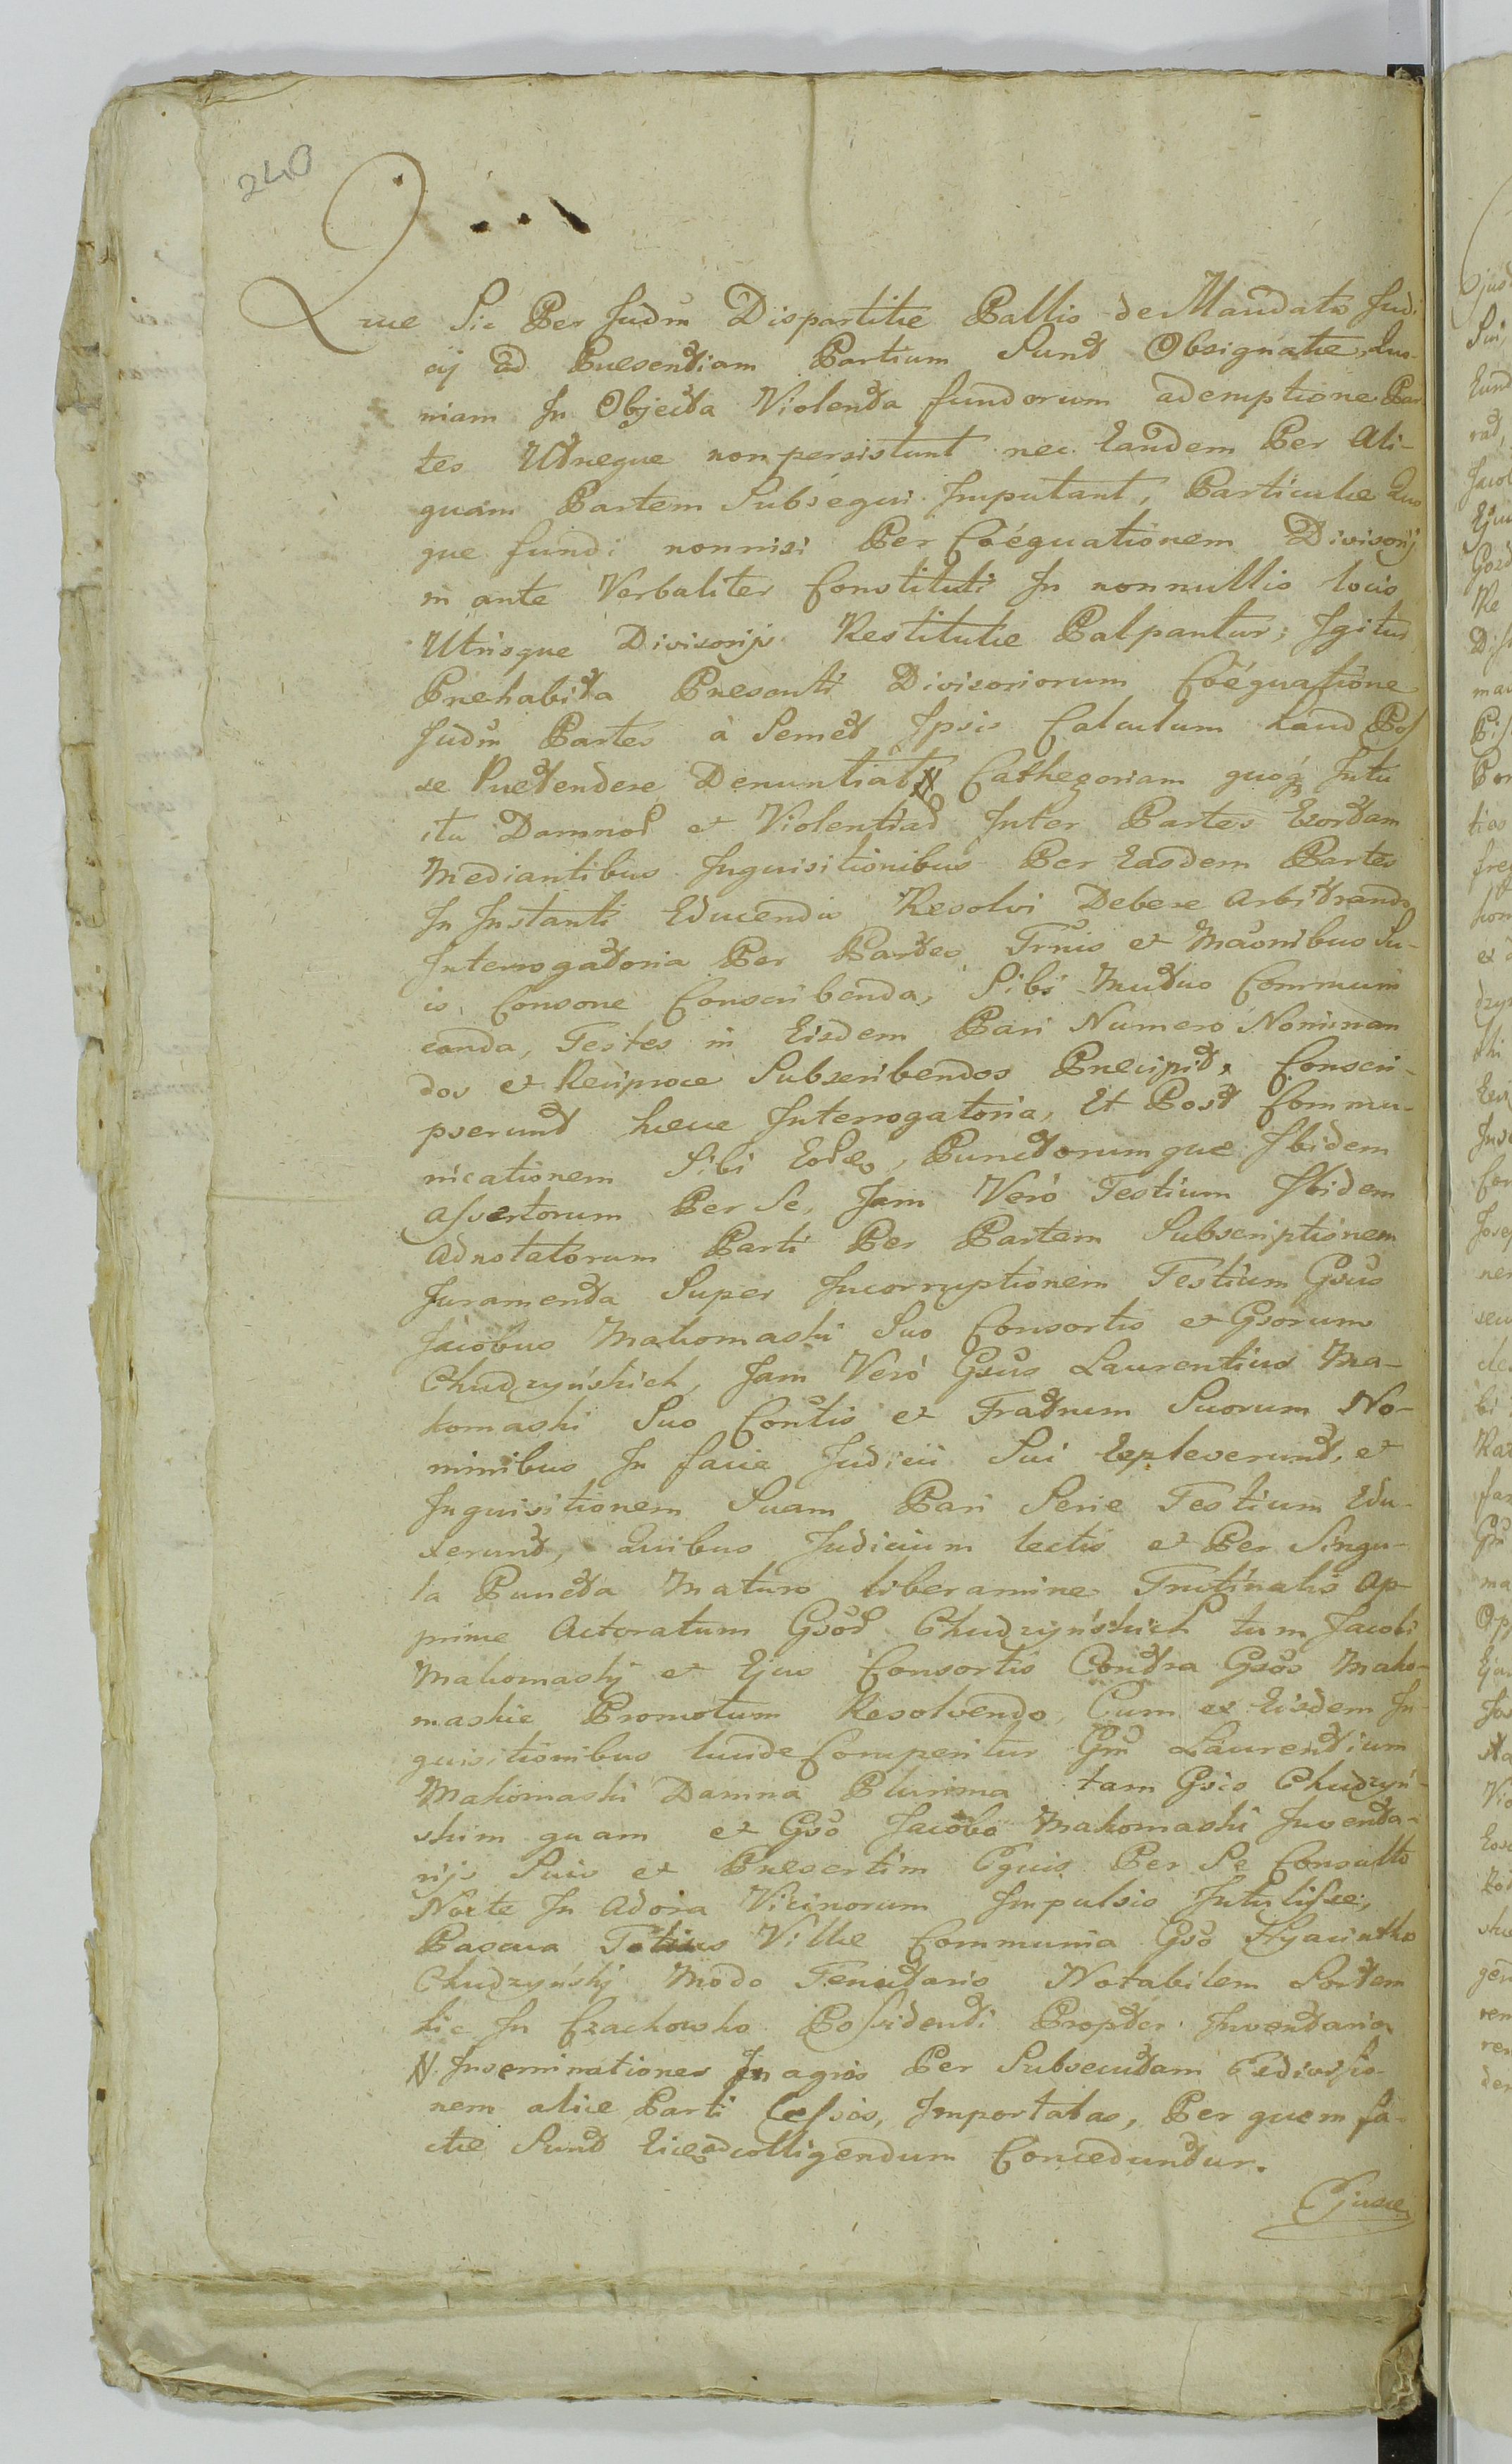 240
Quæ Sic Per Judm Dispartitæ Pallis de Mandato Judi
cij ad Præsentiam Partium Sunt Obsignatæ, Quo-
niam In Objecta Violenta fundorum ademptione Par
tes Utræque non persistunt nec Eandem Per Ali-
quam Partem Subsequi Imputant, Particulæ Quo
que fundi nonnisi Per Coëquationem Divisorij
in ante Verbaliter Constituti In nonnullis locis
Utrisque Divisorijs Restitutæ Palpantur; Igitur
Præhabita Præsenti Divisoriorum Coëquatione
Judm Partes à Semet Ipsis Calculum haud Pos
se Prætendere Denuntiat N Cathegoriam quoq Intu
itu Damnor et Violentiar Inter Partes Exortam
Mediantibus Inquisitionibus Per Easdem Partes
In Instanti Educendis Resolvi Debere Arbitrando
Interrogatoria Per Partes Trnis et Maonibus Su-
is, Consone Conscribenda, Sibi Mutuo Communi
canda, Testes in Eisdem Pari Numero Nominan
dos et Reciproce Subscribendos Præcipit, Conscri-
pserunt hæce Interrogatoria, Et Post Commu-
nicationem Sibi, Punctorumque Ibidem
assertorum Per Se, Jam Verò Testium Ibidem
Adnotatorum Parti Per Partem Subscriptionem
Juramenta Super Incorruptionem Testium Gsus
Jacobus Makomaski Suo Consortis et Gsorum
Chudzyńskich, Jam Verò Gsus Laurentius Ma-
komaski Suo Contis et Fratrum Suorum No-
minibus In facie Judicii Sui Expleverunt, et
Inquisitionem Suam Pari Serie Testium Edu-
xerunt, Quibus Judicium lectis et Per Singu-
la Puncta Maturo liberamine Trutinatis Ap-
prime Actoratum Gsor Chudzyńskich tum Jacobi
Makomaskj et Ejus Consortis Contra Gsos Mako-
maskie Promotum Resolvendo, Cum ex Eisdem In-
quisitionibus lucide Comperitur Gm Laurentium
Makomaski Damna Plurima tam Gsis Chudzyń-
skim quam et Gso Jacobo Makomaski Inventa-
rijs Suis et Præsertim Equis Per Se Consulto
Nocte In Adoria Vicinorum Impulsis Intulisse;
Pascua Totius Villæ Communia Gso Hyacintho
Chudzyńskj Modo Tenutario Notabilem Sortem
hic In Czachowko Possidenti Propter Inventaria
N. Inseminationes In agris Per Subsecutam Edivisio-
nem aliæ Parti Cessis, Importatas, Per quem fa-
ctæ Sunt Eice colligendum Conceduntur.
Ejusce